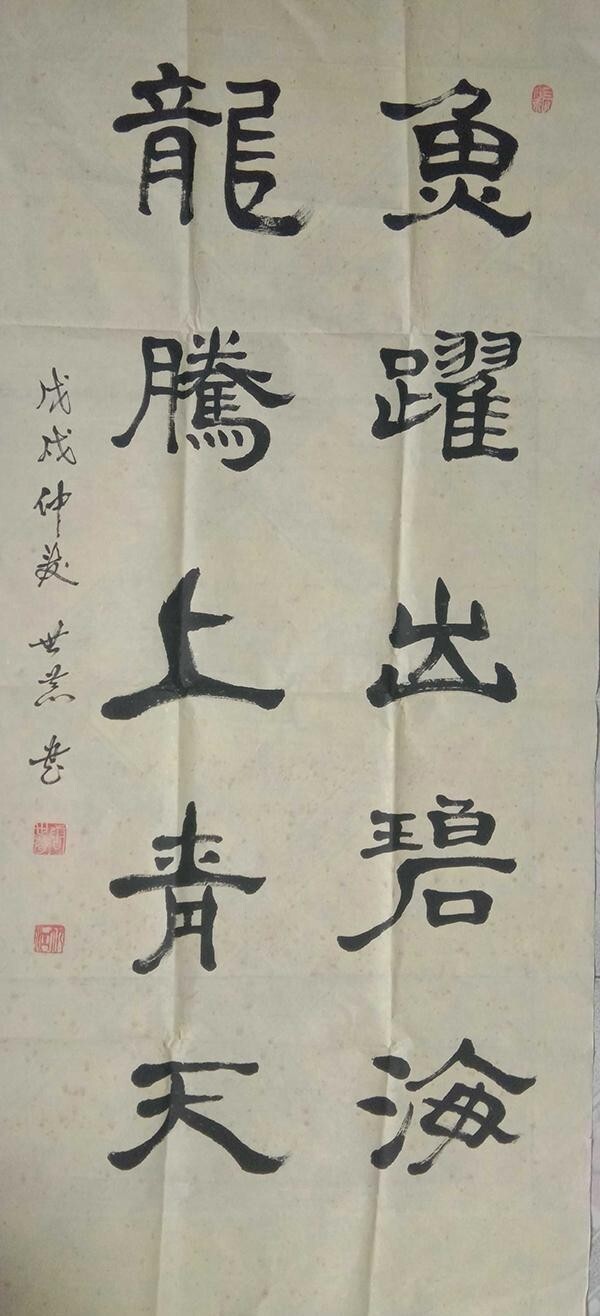 魚躍出碧海
龍騰上青天
戊戌仲夏 世荒 書